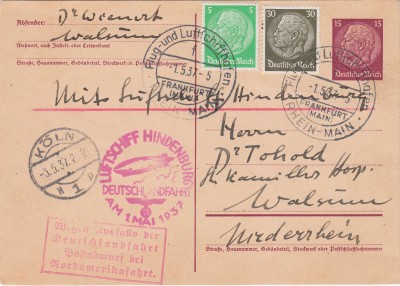 Absender:
Dr Wienert
Walsum
Wohnort, auch Zustell- oder Leitpostamt
Straße, Hausnummer, Gebäudeteil, Stockwerk o. Postschließfachnummer
5
Deutsches Reich
30
30
Deutsches Reich
15
15
Deutsches Reich
Flug- und Luftschiffhafen
f
-1.5.37.-5
FRANKFURT
(MAIN)
RHEIN-MAIN
Flug- und Luftschiffhafen
-1.5.37.-5
FRANKFURT
(MAIN)
RHEIN-MAIN
Mit Luftschiff Hindenburg
KÖLN
-3.5.37.2
1
LUFTSCHIFF HINDENBURG
DEUTSCHLANDFAHRT
AM 1. MAI 1937
Herrn
Dr Tohold
Kamiller Hosp.
Walsum
Niederrhein
Wegen Ausfalls der
Deutschlandfahrt
Postabwurf bei
Nordamerikafahrt.
Straße, Hausnummer, Gebäudeteil, Stockwerk oder Postschließfachnummer